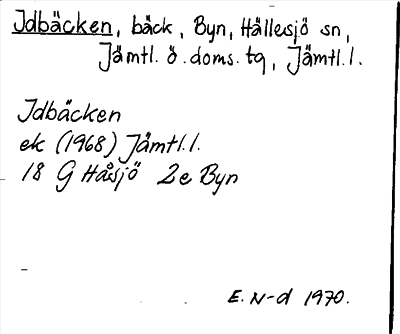 Idbäcken, bäck, Byn, Hällesjö sn,
Jämtl. ö. doms. tg, Jämtl. l.
Idbäcken
ek (1968) Jämtl. l.
18 G Håsjö 2e Byn
E. N-d 1970.